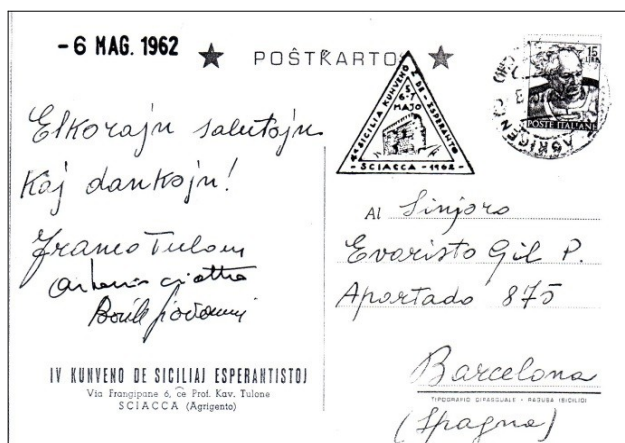 -6 MAG. 1962
POŜTKARTO
SICILIA KUNVENO DE ESPERANTO
MAJO
- SCIACCA - 1962 -
15
POSTE ITALIANE
Elkorajn salutojn
Kaj dankojn!
Franco
Giovanni
IV KUNVENO DE SICILIAJ ESPERANTISTOJ
Via Frangipane 6, ĉe Prof. Kav. Tulone
SCIACCA (Agrigento)
Al Sinjoro
Evaristo Gil P.
Apartado 875
Barcelona
TIPOGRAFIO DIPASQUALE - RAGUSA (SICILIO)
(Spagna)